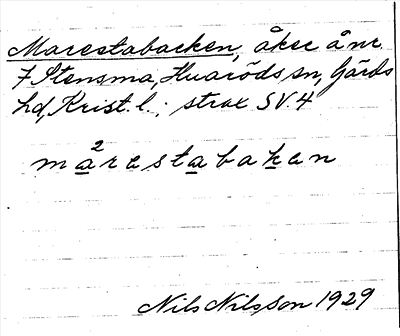 Marestabacken, åker å nr
7 Stensma, Huaröds sn, Gärds
hd, Krist. l.; strax SV. 4
2
mårestabaken
Nils Nilsson 1929